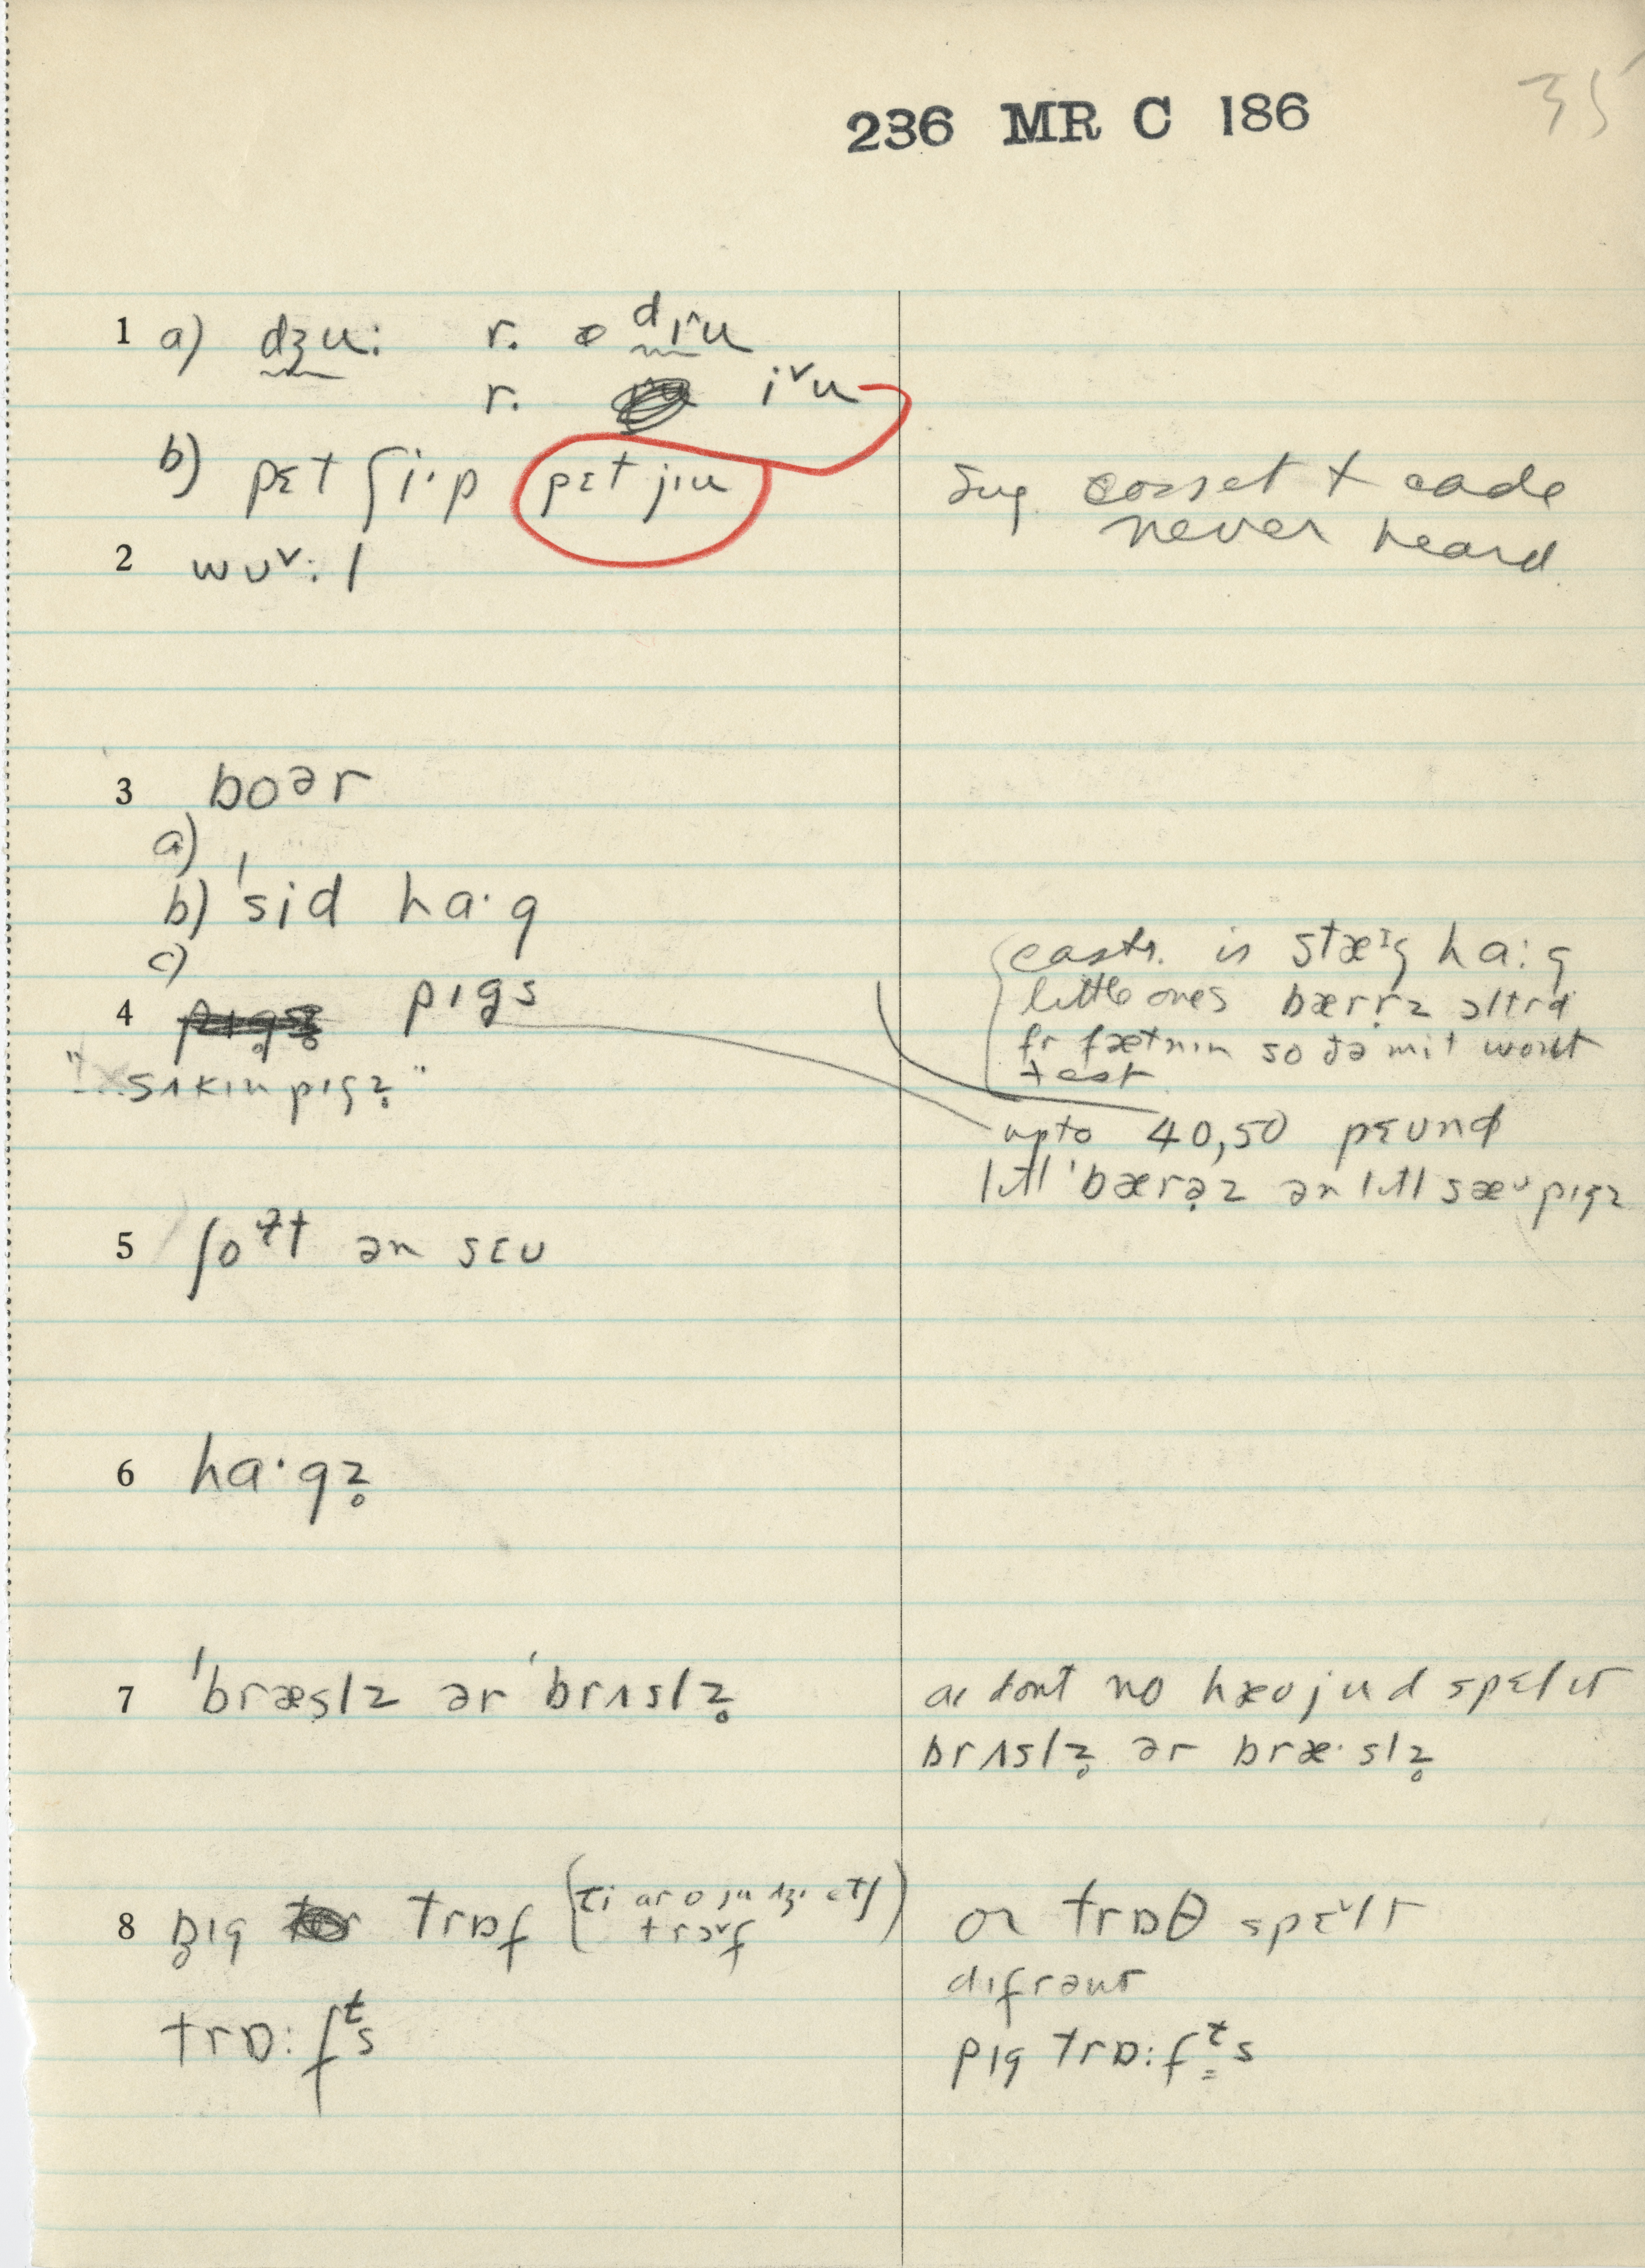 35
236 MR C 186
1 a) dʒu: r. dɪ^u
r. i˅u
b) pɛt ʃi·p pɛt jɪu
sug. cosset + cade
never heard
2 wʊ˅:l
3 boər
a)
b) 'sid ha·g
c)
castr. is stæɪg ha:g
little ones bærr̥z altrd
fr fætnɪn so ðə mit wont
tast
4 pɪgs
"...sʌkɪn pɪgz̥"
upto 40,50 pɛʊnd
lɪtl 'bærə̣z ən lɪtl sæʊ pɪgz
5 ʃoət ən sɛʊ
6 ha·gz̥
7 'bræslz ər 'brʌslz̥
aɪ dont no hæʊ jud spɛl ɪt
brʌslz̥ ər bræ·slz̥
8 pɪg trɒf
trɔ˅f
or trɒθ spɛ˅lt
dɪfrənt
trɒ:fᵗs
pɪg trɒ:fᵗs